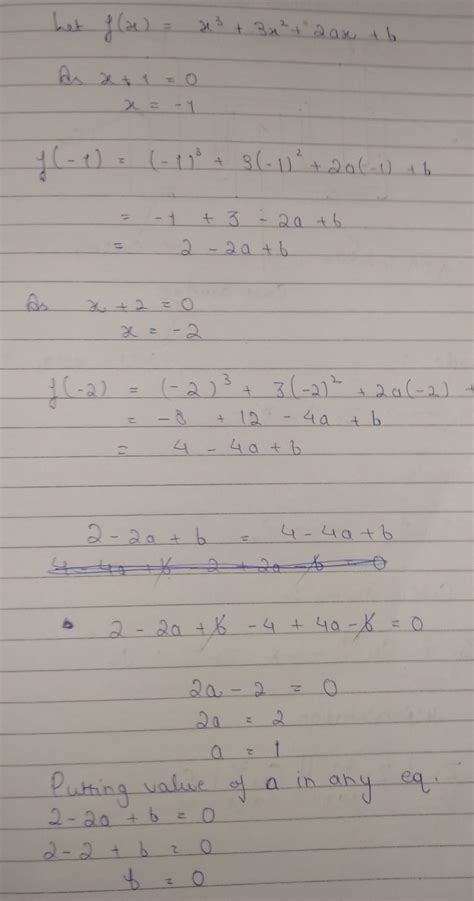 Let f(x) = x³ + 3x² + 2ax + b
As x + 1 = 0
x = -1
f(-1) = (-1)³ + 3(-1)² + 2a(-1) + b
= -1 + 3 - 2a + b
= 2 - 2a + b
As x + 2 = 0
x = -2
f(-2) = (-2)³ + 3(-2)² + 2a(-2) +
= -8 + 12 - 4a + b
= 4 - 4a + b
2 - 2a + b = 4 - 4a + b
4 - 4a + b - 2 + 2a - b = 0
2 - 2a + b - 4 + 4a - b = 0
2a - 2 = 0
2a = 2
a = 1
Putting value of a in any eq.
2 - 2a + b = 0
2 - 2 + b = 0
b = 0